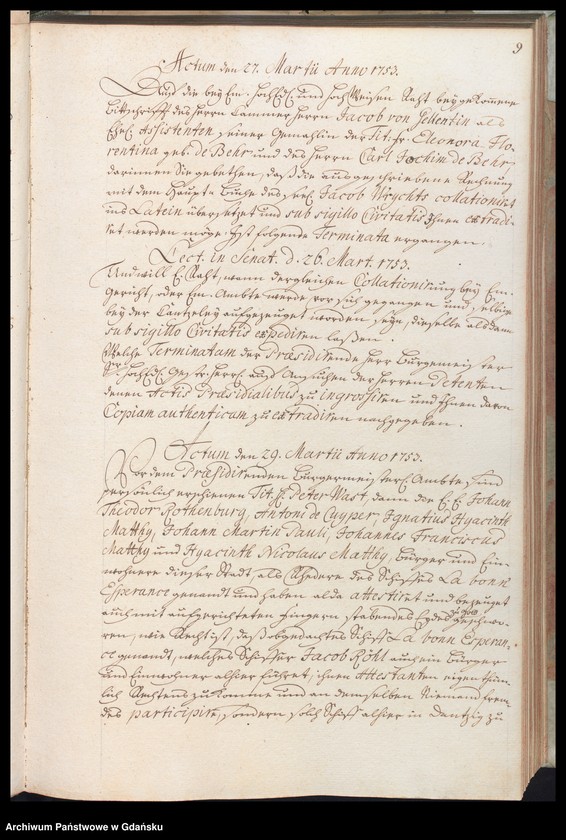 9
Actum den 27. Martii Anno 1753.
Auf die bey Em. HochEdl. und Hochweisen Raht beygekommene
Bittschrifft des Herrn Cammerherrn Jacob von Jellentin als
Ehel. Assistenten seiner Gemahlin der Tit. Fr. Eleonora Flo-
rentina geb. de Behr und des Herrn Carl Jochim de Behr,
darinnen Sie gebethen, daß die ausgeschriebene Rechnung
mit dem Haupt-Buche des seel. Jacob Wrychts collationirt
ins Latein übersetzet und sub sigillo Civitatis Ihnen extradi-
ret werden möge. Ist folgende Terminata ergangen.
Lect. in Senat. d. 26. Mart. 1753.
Und will E. Raht, wann dergleichen Collationirung bey Em.
Gericht, oder Em. Ambte werde vor sich gegangen und selbige
bey der Cantzeley aufgezeuget worden seyn, dieselbe alsdann
sub sigillo Civitatis expediren laßen.
Welche Terminatam der Præsidirende Herr Bürgemeister
Sr. HochEdl. Gestr. Herrl. auf Ansuchen der Herren Petenten
denen Actis Præsidialibus zu ingrossiren und Ihnen davon
Copiam authenticam zu extradiren nachgegeben.
Actum den 29. Martii Anno 1753.
Vor dem Præsidirenden Bürgemeisterl. Ambte sind
persönlich erschienen Tit. H. Peter Wast, dann die E. E. Johann
Theodor Rothenburg, Antoni de Cuyper, Ignatius Hyacinth
Matthy, Johann Martin Pauli, Johannes Franciscus
Matthy und Hyacinth Nicolaus Matthy, Bürger und Ein-
wohnere dieser Stadt, als Rhedere des Schiffes La bonn
Esperance genandt und haben alda attestiret und bezeuget
auch mit aufgerichteten Fingern stabendes Eydes zu Gott geschwo-
ren, wie Recht ist, daß obgedachtes Schiff La bonn Esperan-
ce genandt, welches Schiffer Jacob Röhl auch ein Bürger
und Einwohner alhier führet, ihnen Attestanten eigenthüm-
lich Rechtens zukomme und an demselben Niemand frem-
des participire, sondern solch Schiff alhier in Dantzig zu
Archiwum Państwowe w Gdańsku